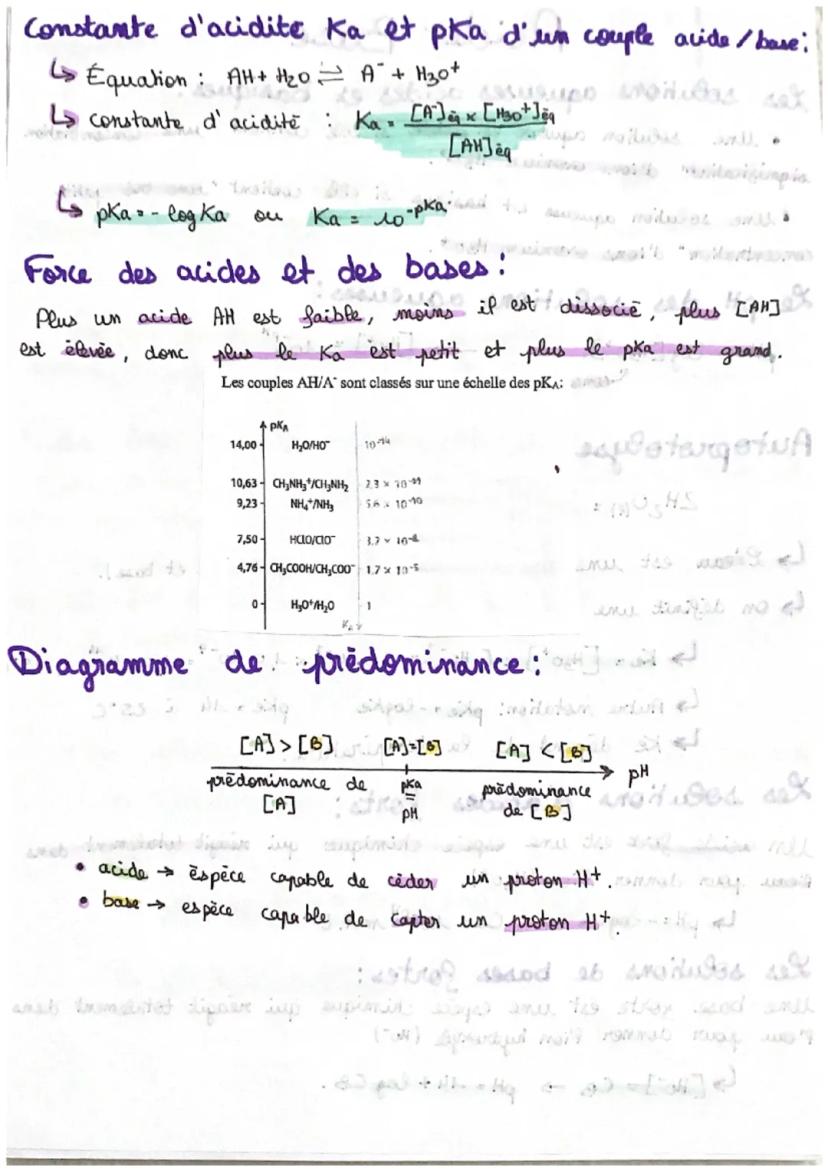 Constante d'acidité Ka et pKa d'un couple acide/base:
↳ Équation : AH + H₂O ⇌ A⁻ + H₃O⁺
↳ constante d'acidité : Ka = [A⁻]éq × [H₃O⁺]éq / [AH]éq
↳ pKa = - log Ka ou Ka = 10^-pKa
Force des acides et des bases :
Plus un acide AH est faible, moins il est dissocié, plus [AH]
est élevée, donc plus le Ka est petit et plus le pKa est grand.
Les couples AH/A⁻ sont classés sur une échelle des pKA:
pKA
14,00 H₂O/HO⁻ 10⁻¹⁴
10,63 CH₃NH₃⁺/CH₃NH₂ 2.3 × 10⁻¹¹
9,23 NH₄⁺/NH₃ 5.6 × 10⁻¹⁰
7,50 HClO/ClO⁻ 3.2 × 10⁻⁸
4,76 CH₃COOH/CH₃COO⁻ 1.7 × 10⁻⁵
0 H₃O⁺/H₂O 1
KA
Diagramme de prédominance :
[A] > [B] [A] = [B] [A] < [B]
pH
prédominance de [A] pKa = pH prédominance de [B]
• acide → espèce capable de céder un proton H⁺.
• base → espèce capable de capter un proton H⁺.